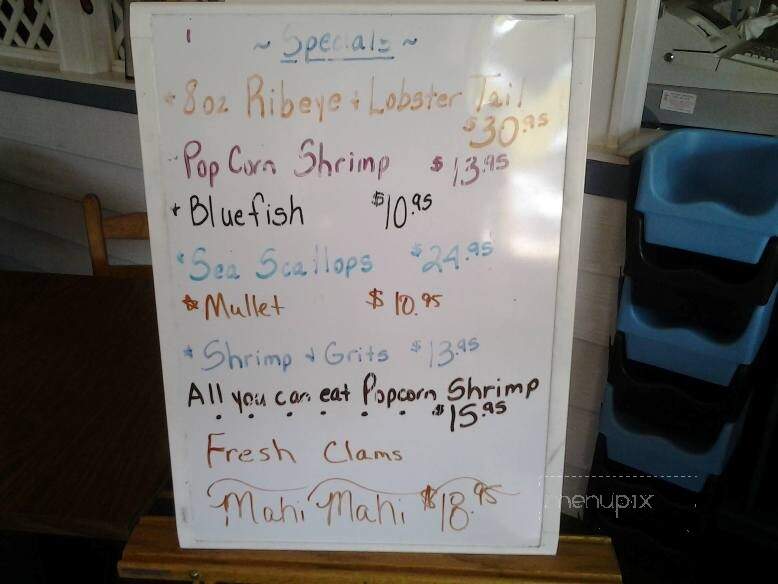 ~ Specials ~
* 8oz Ribeye + Lobster Tail
$30.95
Pop Corn Shrimp $13.95
* Bluefish $10.95
* Sea Scallops $24.95
* Mullet $10.95
* Shrimp + Grits $13.95
All you can eat Popcorn Shrimp
$15.95
Fresh Clams
Mahi Mahi $18.95
menupix